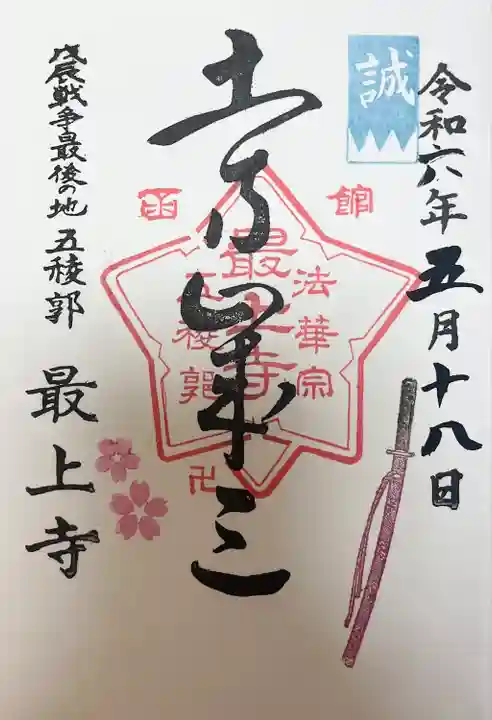 誠
令和六年五月十八日
土方歳三
函館
最上寺
法華宗
五稜郭
卍
戊辰戦争最後の地 五稜郭
最上寺